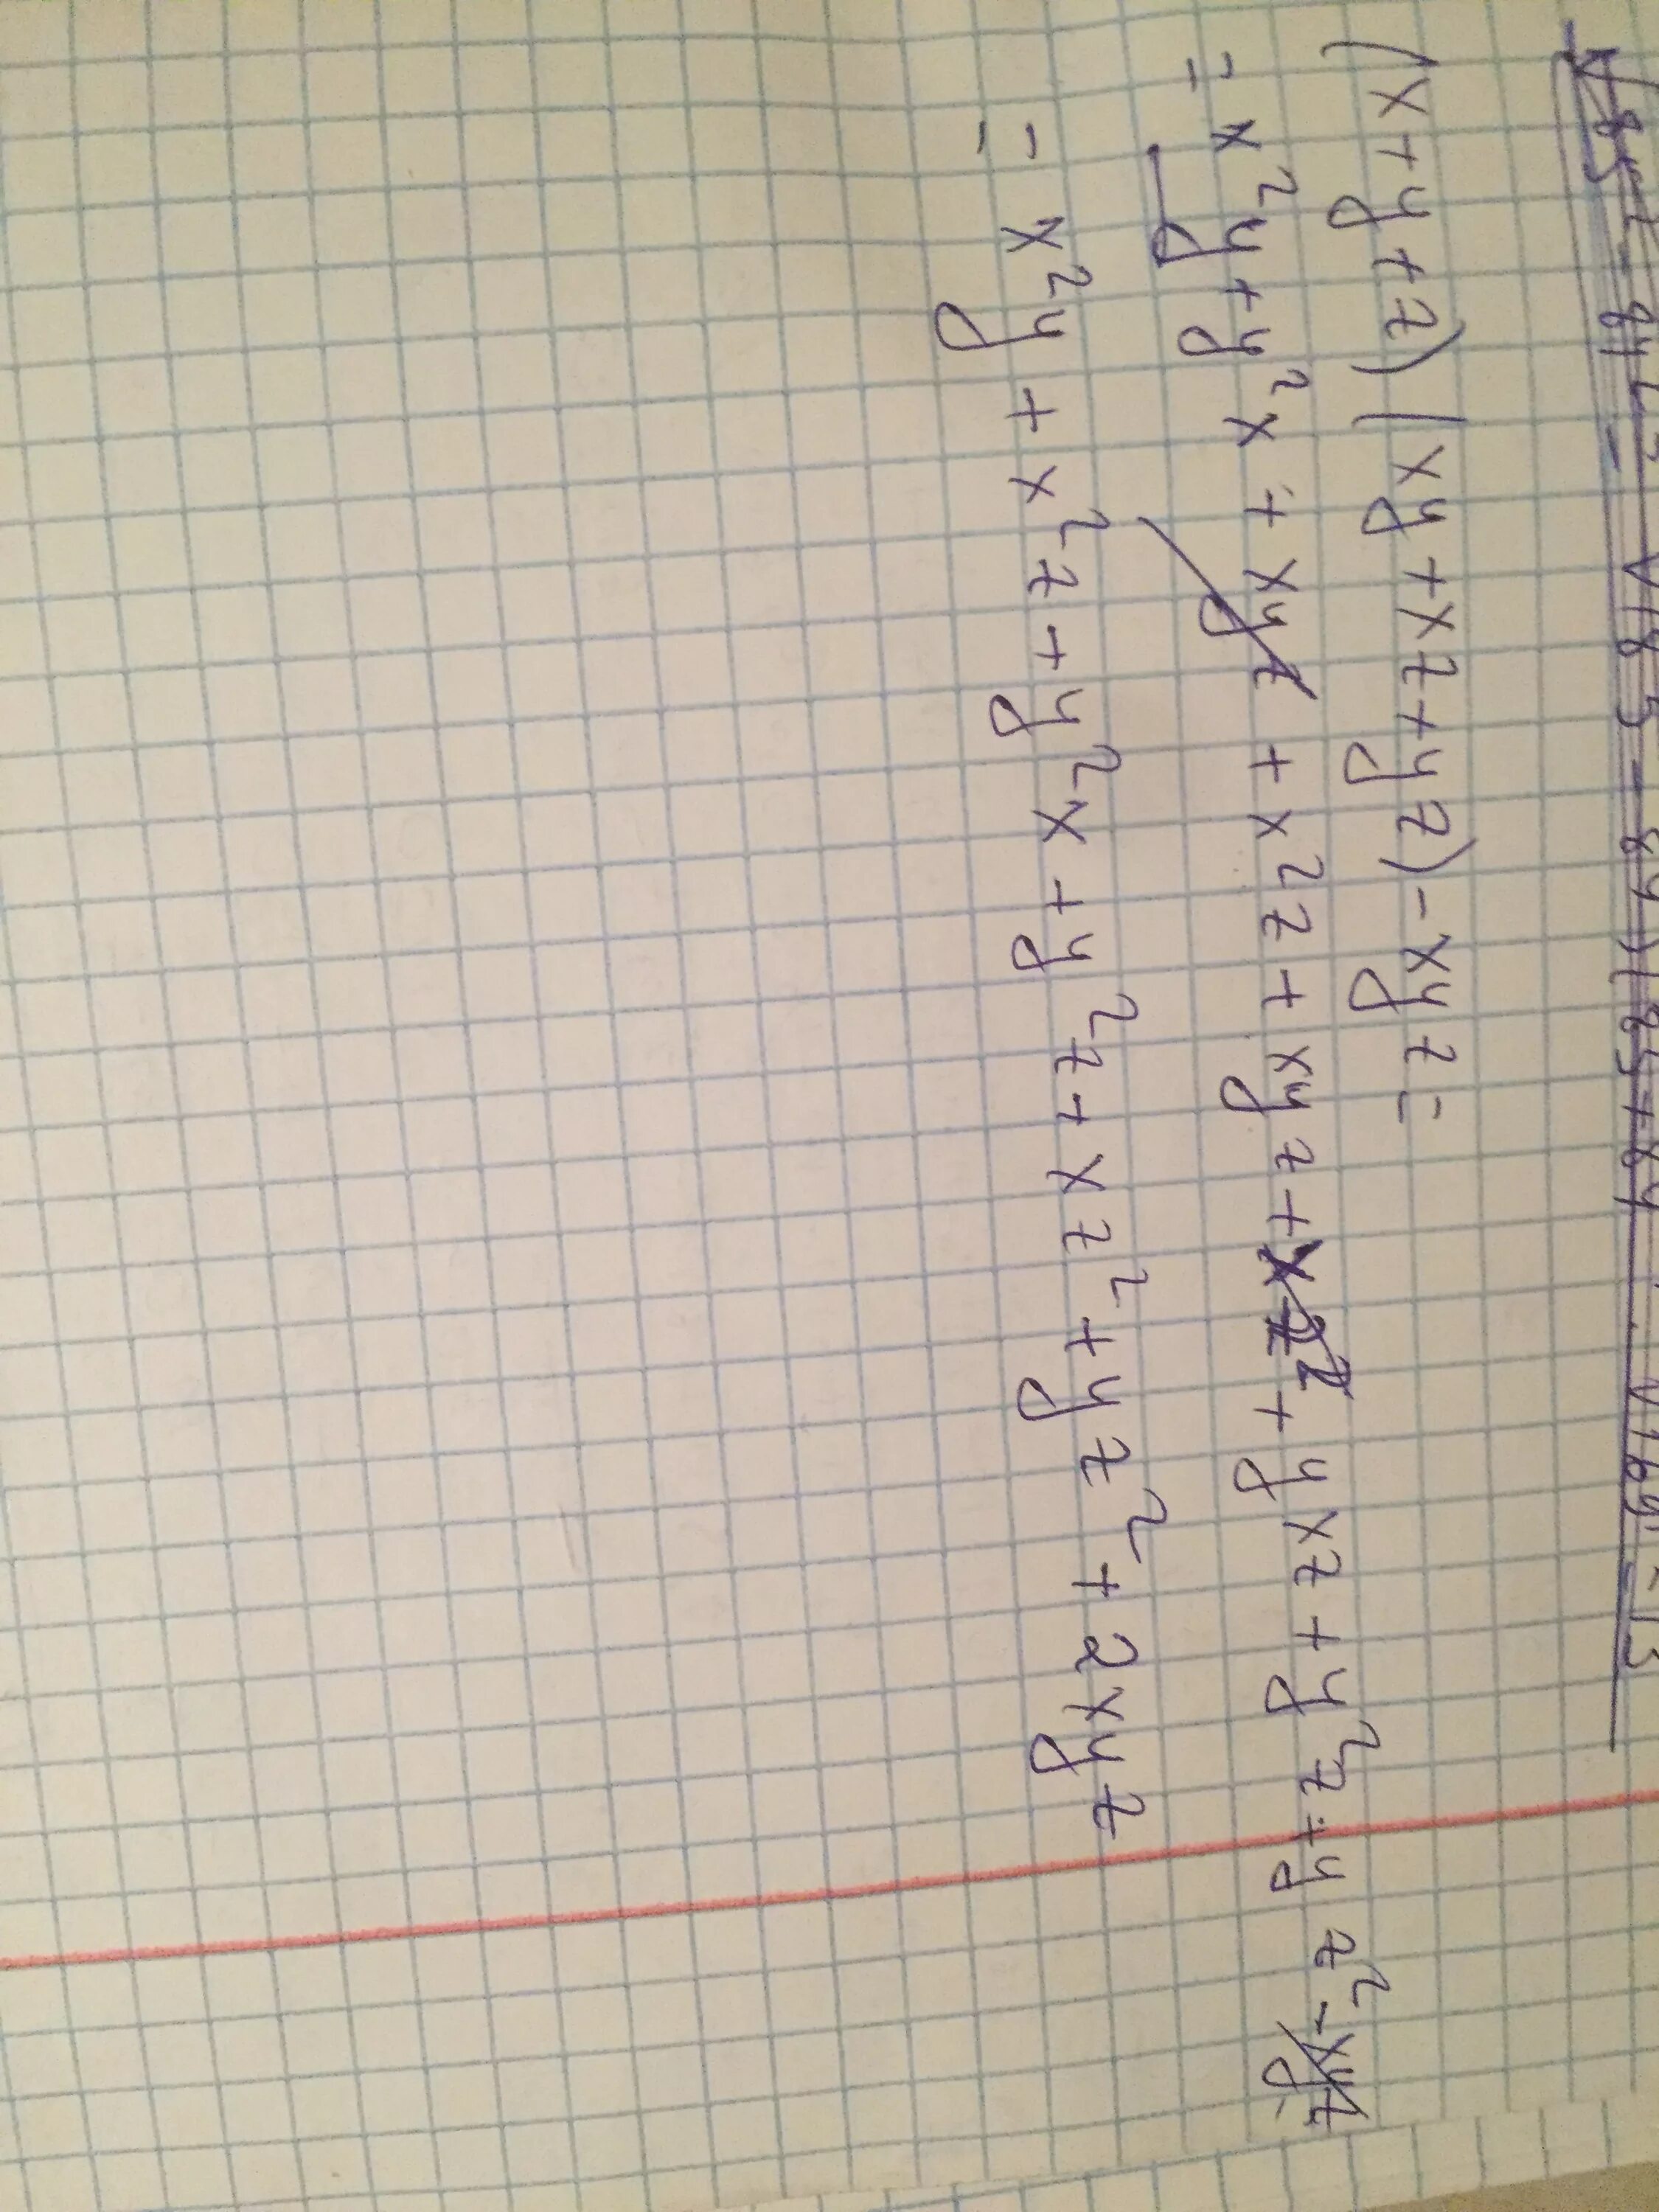 (x+y+z)(xy+xz+yz)-xyz=
=x²y+y²x+xyz+x²z+xyz+xz²+yxz+y²z+yz²-xyz=
=x²y+x²z+y²x+y²z+xz²+yz²+2xyz